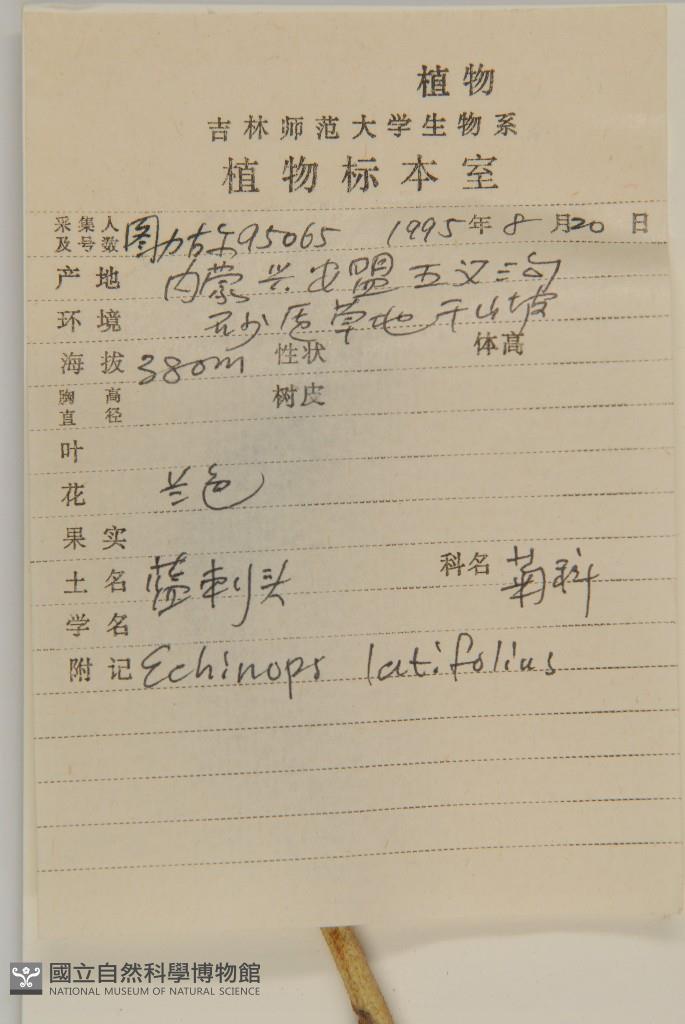 植物
吉林师范大学生物系
植物标本室
采集人及号数 图力古尔95065 1995年8月20日
产地 内蒙兴安盟五叉沟
环境 砂质草地干山坡
海拔 380m 性状 体高
胸高直径 树皮
叶
花 兰色
果实
土名 蓝刺头 科名 菊科
学名
附记 Echinops latifolius
國立自然科學博物館
NATIONAL MUSEUM OF NATURAL SCIENCE